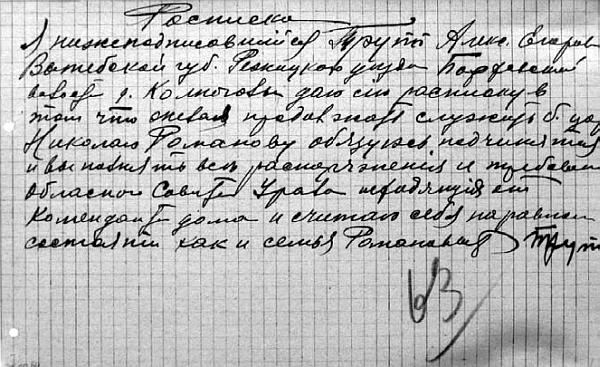 Росписка
Я нижеподписавшийся Трупп Алекс. Егоров
Витебской губ. Режицкого уезда
волости д. даю сию расписку в
том что желая продолжать служить б. цар
Николаю Романову обязуюсь подчинятся
и выполнять все распоряжения и требован
областного Совета Урала исходящия от
Коменданта дома и считать себя на равном
состоянии как и семья Романовых Трупп